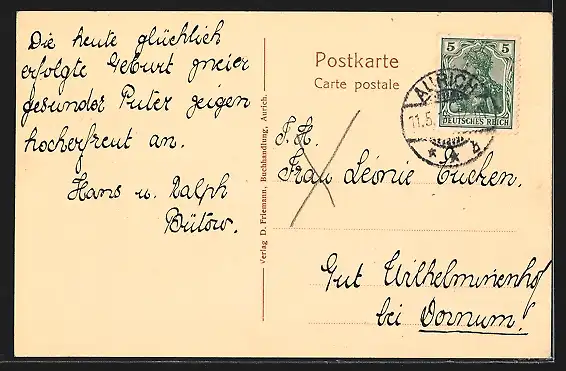 Die heute glücklich
erfolgte Geburt zweier
gesunder Puter zeigen
hocherfreut an.
Hans u. Ralph
Bütow.
Verlag D. Friemann, Buchhandlung, Aurich.
Postkarte
Carte postale
5 5
DEUTSCHES REICH
AURICH
11.5.
I. H.
Frau Leonie Cucken.
Gut Wilhelminenhof
bei Dornum!